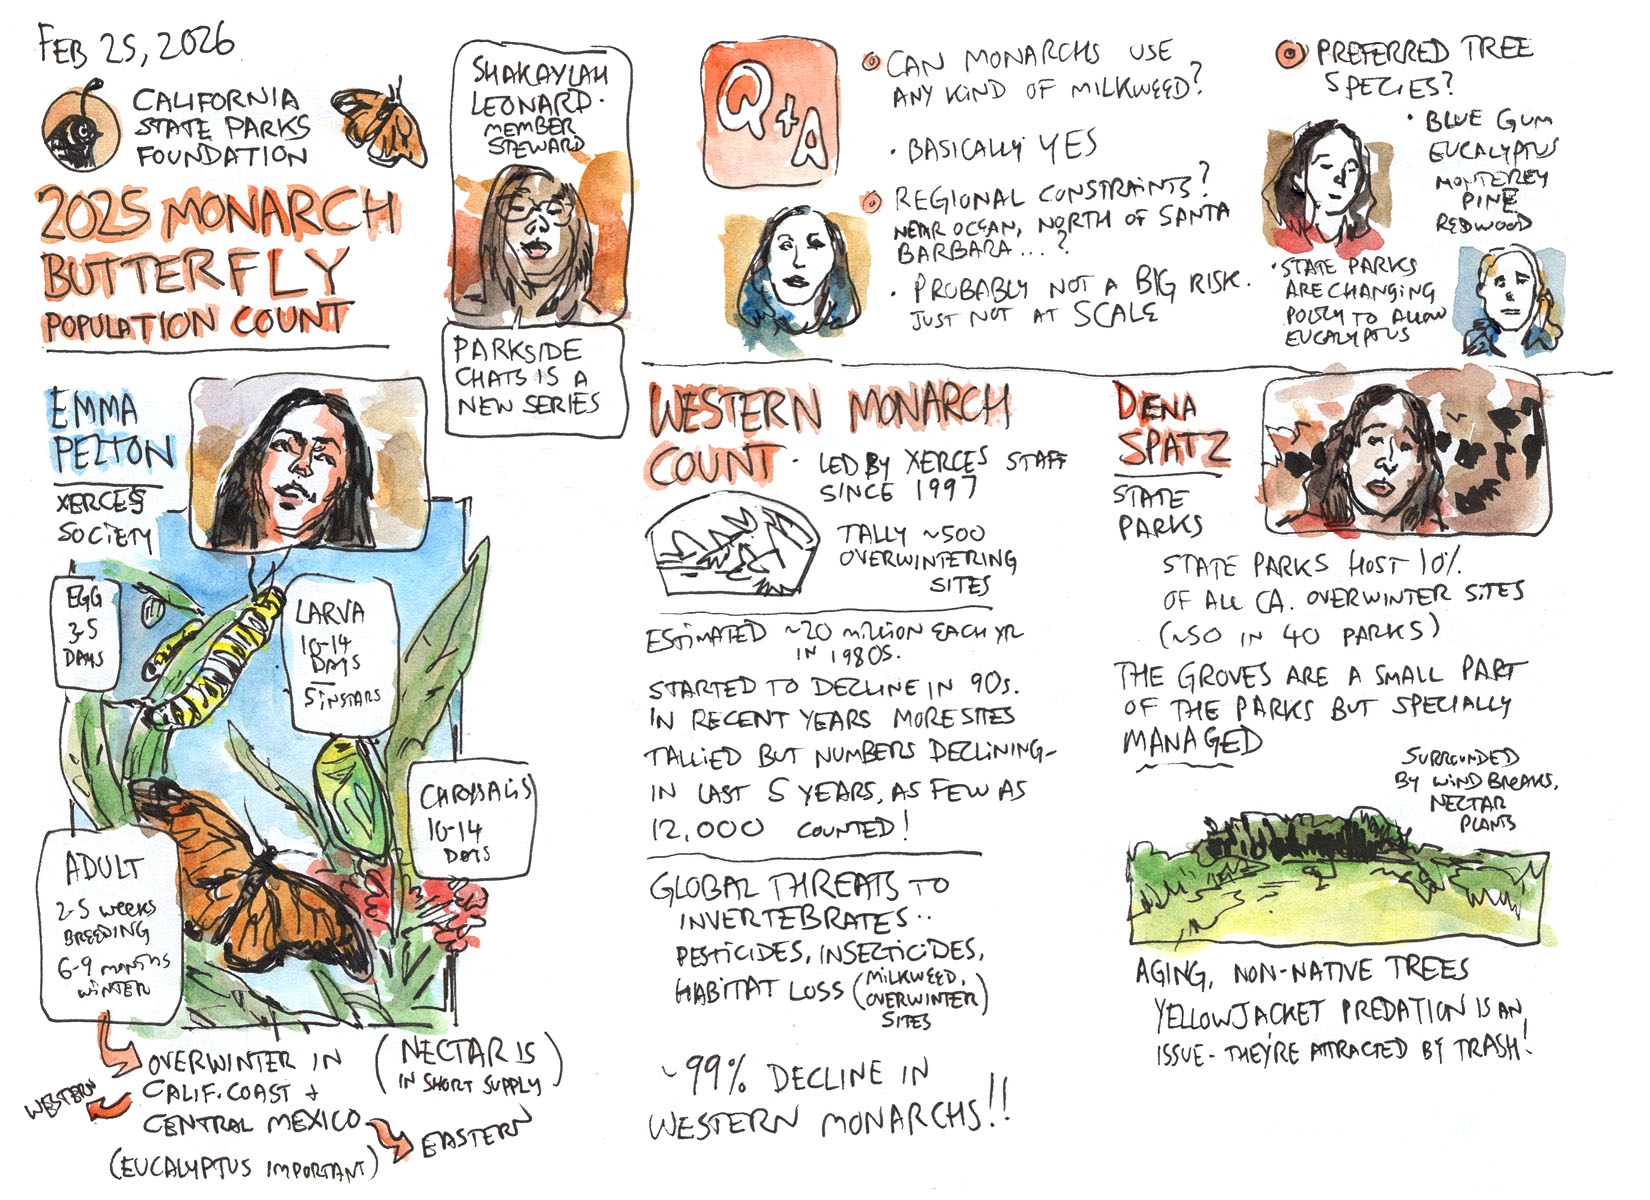 FEB 25, 2026
CALIFORNIA
STATE PARKS
FOUNDATION
2025 MONARCH
BUTTERFLY
POPULATION COUNT
SHAKAYLAH
LEONARD.
MEMBER
STEWARD
PARKSIDE
CHATS IS A
NEW SERIES
EMMA
PELTON
XERCES
SOCIETY
EGG
3-5
DAYS
LARVA
10-14
DAYS
5 INSTARS
CHRYSALIS
10-14
DAYS
ADULT
2-5 WEEKS
BREEDING
6-9 MONTHS
WINTER
OVERWINTER IN
CALIF. COAST +
CENTRAL MEXICO
(EUCALYPTUS IMPORTANT)
WESTERN
EASTERN
(NECTAR IS
IN SHORT SUPPLY)
Q+A
CAN MONARCHS USE
ANY KIND OF MILKWEED?
· BASICALLY YES
REGIONAL CONSTRAINTS?
NEAR OCEAN, NORTH OF SANTA
BARBARA...?
· PROBABLY NOT A BIG RISK.
JUST NOT AT SCALE
PREFERRED TREE
SPECIES?
· BLUE GUM
EUCALYPTUS
MONTEREY
PINE
REDWOOD
· STATE PARKS
ARE CHANGING
POLICY TO ALLOW
EUCALYPTUS
WESTERN MONARCH
COUNT · LED BY XERCES STAFF
SINCE 1997
TALLY ~500
OVERWINTERING
SITES
ESTIMATED ~20 MILLION EACH YR
IN 1980S.
STARTED TO DECLINE IN 90S.
IN RECENT YEARS MORE SITES
TALLIED BUT NUMBERS DECLINING-
IN LAST 5 YEARS, AS FEW AS
12,000 COUNTED!
GLOBAL THREATS TO
INVERTEBRATES..
PESTICIDES, INSECTICIDES,
HABITAT LOSS (MILKWEED,
OVERWINTER)
SITES
~99% DECLINE IN
WESTERN MONARCHS!!
DENA
SPATZ
STATE
PARKS
STATE PARKS HOST 10%
OF ALL CA. OVERWINTER SITES
(~50 IN 40 PARKS)
THE GROVES ARE A SMALL PART
OF THE PARKS BUT SPECIALLY
MANAGED
SURROUNDED
BY WIND BREAKS,
NECTAR
PLANTS
AGING, NON-NATIVE TREES
YELLOWJACKET PREDATION IS AN
ISSUE - THEY'RE ATTRACTED BY TRASH!